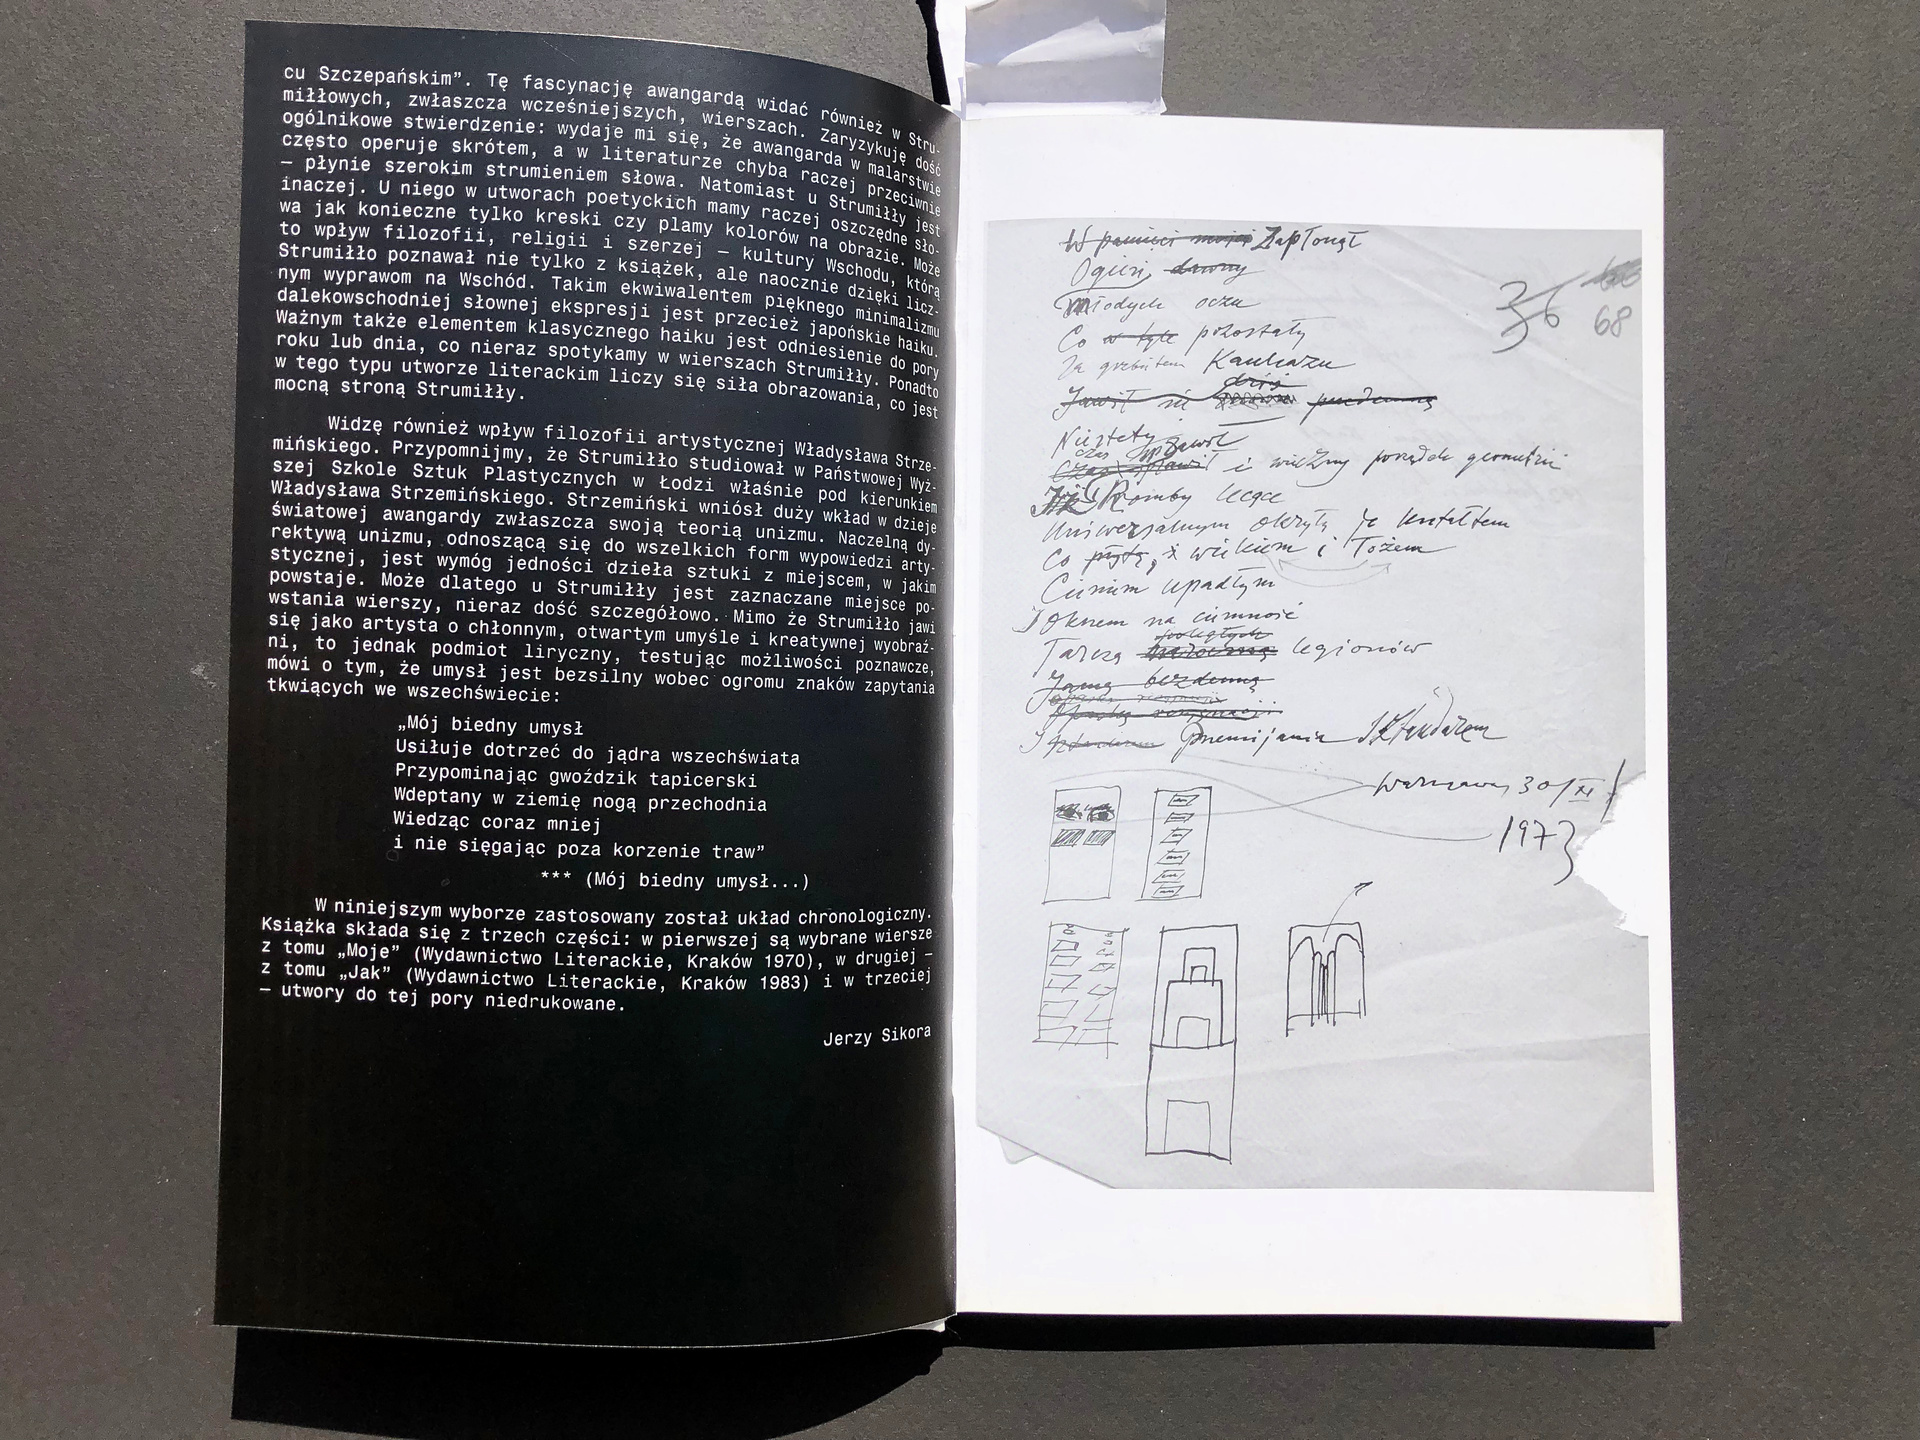 cu Szczepańskim”. Tę fascynację awangardą widać również w Stru-
miłłowych, zwłaszcza wcześniejszych, wierszach. Zaryzykuję dość
ogólnikowe stwierdzenie: wydaje mi się, że awangarda w malarstwie
często operuje skrótem, a w literaturze chyba raczej przeciwnie
– płynie szerokim strumieniem słowa. Natomiast u Strumiłły jest
inaczej. U niego w utworach poetyckich mamy raczej oszczędne sło-
wa jak konieczne tylko kreski czy plamy kolorów na obrazie. Może
to wpływ filozofii, religii i szerzej – kultury Wschodu, którą
Strumiłło poznawał nie tylko z książek, ale naocznie dzięki licz-
nym wyprawom na Wschód. Takim ekwiwalentem pięknego minimalizmu
dalekowschodniej słownej ekspresji jest przecież japońskie haiku.
Ważnym także elementem klasycznego haiku jest odniesienie do pory
roku lub dnia, co nieraz spotykamy w wierszach Strumiłły. Ponadto
w tego typu utworze literackim liczy się siła obrazowania, co jest
mocną stroną Strumiłły.
Widzę również wpływ filozofii artystycznej Władysława Strze-
mińskiego. Przypomnijmy, że Strumiłło studiował w Państwowej Wyż-
szej Szkole Sztuk Plastycznych w Łodzi właśnie pod kierunkiem
Władysława Strzemińskiego. Strzemiński wniósł duży wkład w dzieje
światowej awangardy zwłaszcza swoją teorią unizmu. Naczelną dy-
rektywą unizmu, odnoszącą się do wszelkich form wypowiedzi arty-
stycznej, jest wymóg jedności dzieła sztuki z miejscem, w jakim
powstaje. Może dlatego u Strumiłły jest zaznaczane miejsce po-
wstania wierszy, nieraz dość szczegółowo. Mimo że Strumiłło jawi
się jako artysta o chłonnym, otwartym umyśle i kreatywnej wyobraź-
ni, to jednak podmiot liryczny, testując możliwości poznawcze,
mówi o tym, że umysł jest bezsilny wobec ogromu znaków zapytania
tkwiących we wszechświecie:
„Mój biedny umysł
Usiłuje dotrzeć do jądra wszechświata
Przypominając gwoździk tapicerski
Wdeptany w ziemię nogą przechodnia
Wiedząc coraz mniej
i nie sięgając poza korzenie traw”
*** (Mój biedny umysł...)
W niniejszym wyborze zastosowany został układ chronologiczny.
Książka składa się z trzech części: w pierwszej są wybrane wiersze
z tomu „Moje” (Wydawnictwo Literackie, Kraków 1970), w drugiej –
z tomu „Jak” (Wydawnictwo Literackie, Kraków 1983) i w trzeciej
– utwory do tej pory niedrukowane.
Jerzy Sikora
W pamięci mojej Zapłonął
Ogień, dawny
Młodych oczu
Co w tyle pozostały
Za grzbietem Kaukazu
36
68
Jawił się dziś
Niestety
czas
i wieczny porządek geometrii
Romby lecące
Uniwersalnym okryłą je kształtem
Co płytą, z wiekiem i Łożem
Cieniem upadłym
I Oknem na ciemność
poległych
Tarczą legionów
Jamą bezdenną
I przemijania Sztandarem
Warszawa, 30/XI
1973